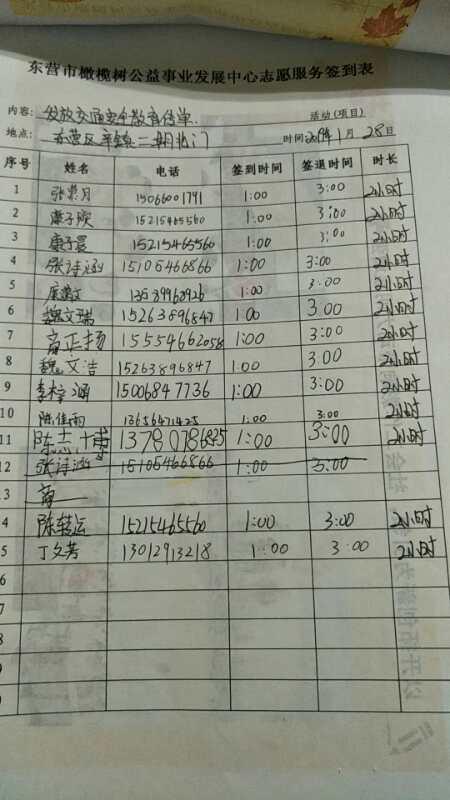 东营市橄榄树公益事业发展中心志愿服务签到表
内容: 发放交通安全教育传单. 活动(项目)
地点: 东营区辛镇二期北门 时间2019年1月28日
序号 姓名 电话 签到时间 签退时间 时长
1 张景月 15066001791 1:00 3:00 2小时
2 康子骙 15215465560 1:00 3:00 2小时
3 康子晨 15215465560 1:00 3:00 2小时
4 张诗涵 15105466866 1:00 3:00 2小时
5 13539960926 1:00 3:00 2小时
6 魏文瑞 15263896847 1:00 3:00 2小时
7 高正扬 15554662058 1:00 3:00 2小时
8 魏文浩 15263896847 1:00 3:00 2小时
9 李梓涵 15006847736 1:00 3:00 2小时
10 陈佳雨 13656471425 1:00 3:00 2小时
11 陈志博 13780786825 1:00 3:00 2小时
12 张诗涵 15105466866 1:00 3:00
3 高
4 陈转运 15215465560 1:00 3:00 2小时
5 丁文芳 13012913218 1:00 3:00 2小时
6
7
8